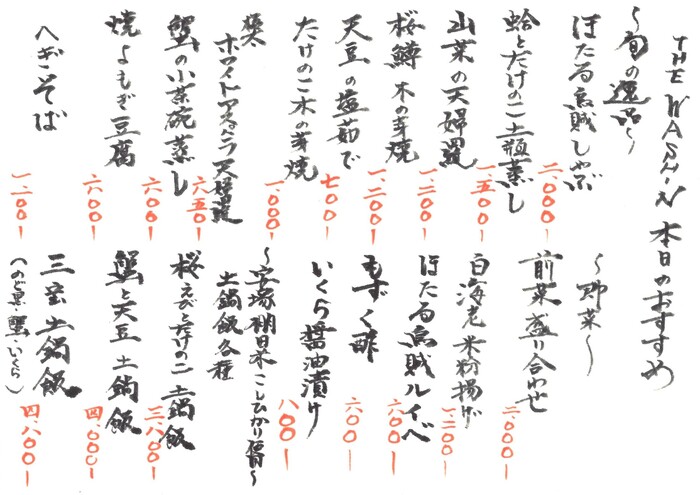 THE WASHIN 本日のおすすめ
～旬の逸品～
ほたる烏賊しゃぶ 二、〇〇〇ー
蛤とたけのこ土瓶蒸し 一、五〇〇ー
山菜の天婦羅 一、二〇〇ー
桜鱒 木の芽焼 一、二〇〇ー
天豆の塩茹で 七〇〇ー
たけのこ木の芽焼 一、〇〇〇ー
極太
ホワイトアスパラ天婦羅 六五〇ー
蟹の小茶碗蒸し 六〇〇ー
焼よもぎ豆腐 六〇〇ー
へぎそば 一、一〇〇ー
～野菜～
前菜盛り合わせ 二、〇〇〇ー
白海老 米粉揚げ 一、二〇〇ー
ほたる烏賊ルイベ 六〇〇ー
もずく酢 六〇〇ー
いくら醤油漬け 八〇〇ー
～安塚棚田米こしひかり使用～
土鍋飯各種
桜えびとたけのこ土鍋飯 三、八〇〇ー
蟹と天豆 土鍋飯 四、〇〇〇ー
三宝土鍋飯 四、八〇〇ー
(のど黒・蟹・いくら)